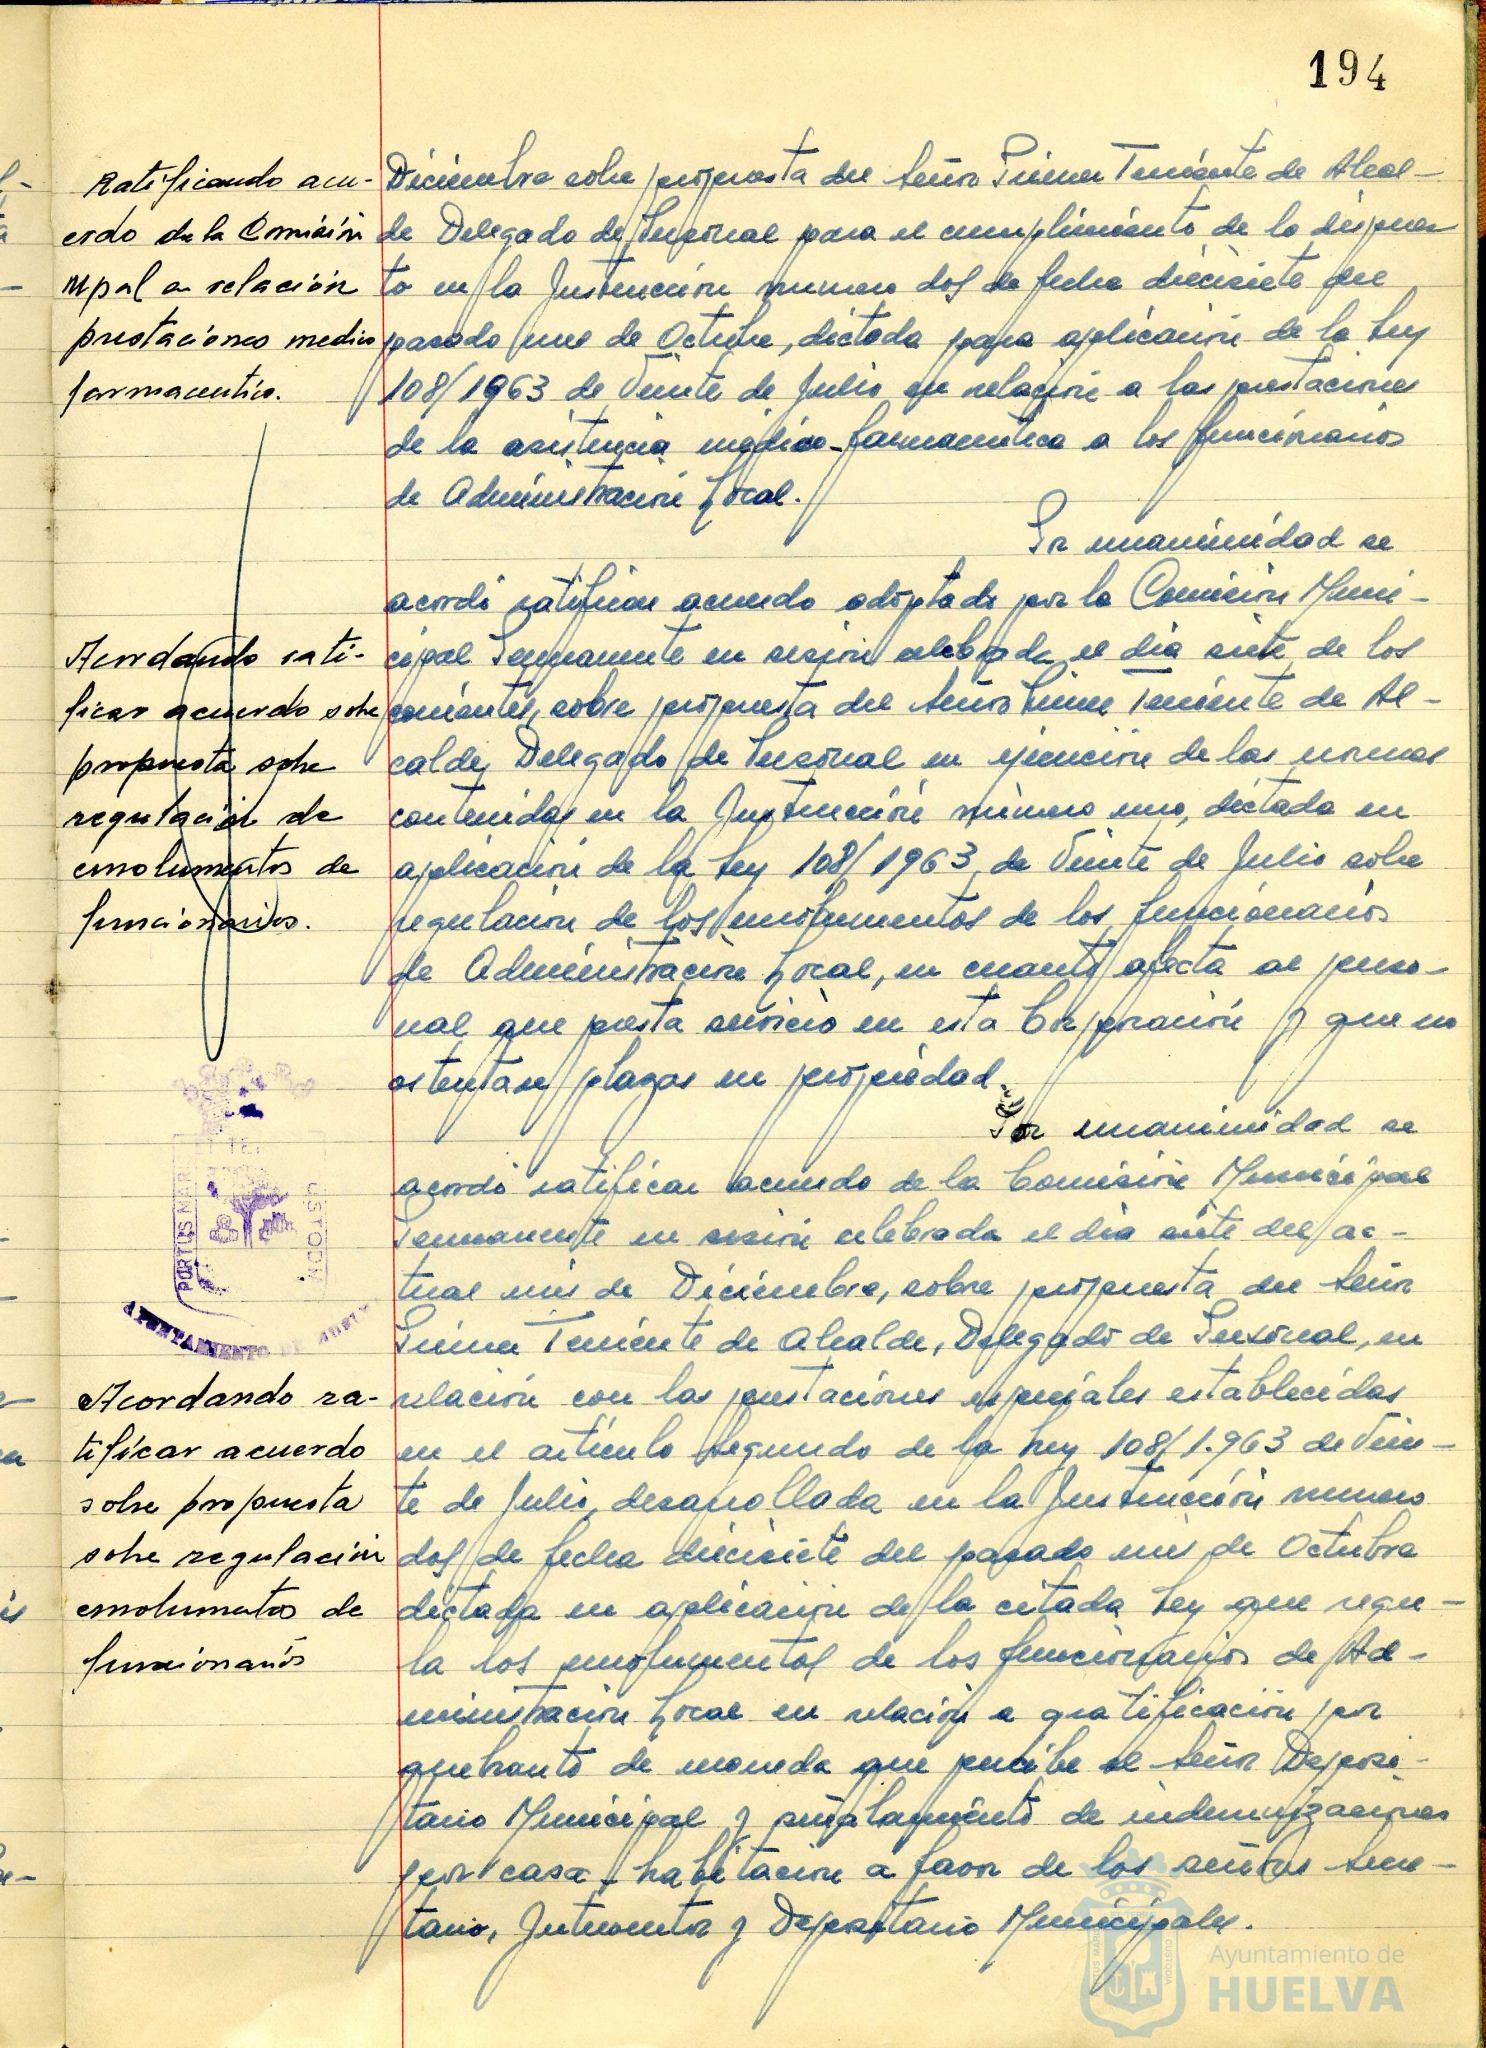 194
Ratificando acu-
erdo de la Comisión
Mpal en relación
prestaciones medico
farmaceutica.
Diciembre sobre propuesta del Señor Primer Teniente de Alcal-
de Delegado de Personal para el cumplimiento de lo dispues
to en la Instrucción número dos de fecha diecisiete del
pasado mes de Octubre, dictada para aplicación de la Ley
108/1963 de Veinte de Julio en relación a las prestaciones
de la asistencia médico-farmaceutica a los funcionarios
de Administración Local.
Por unanimidad se
acordó ratificar acuerdo adoptado por la Comisión Muni-
cipal Permanente en sesión celebrada el día siete de los
corrientes, sobre propuesta del Señor Primer Teniente de Al-
calde, Delegado de Personal en ejecución de las normas
contenidas en la Instrucción número uno, dictada en
aplicación de la Ley 108/1963 de Veinte de Julio sobre
regulación de los emolumentos de los funcionarios
de Administración Local, en cuanto afecta al perso-
nal que presta servicio en esta Corporación y que no
ostentase plazas en propiedad.
Acordando rati-
ficar acuerdo sobre
propuesta sobre
regulación de
emolumentos de
funcionarios.
Por unanimidad se
acordó ratificar acuerdo de la Comisión Municipal
Permanente en sesión celebrada el día siete del ac-
tual mes de Diciembre, sobre propuesta del Señor
Primer Teniente de Alcalde, Delegado de Personal, en
relación con las prestaciones especiales establecidas
en el artículo segundo de la Ley 108/1.963 de Vein-
te de Julio, desarrollada en la Instrucción número
dos de fecha diecisiete del pasado mes de Octubre
dictada en aplicación de la citada Ley que regu-
la los emolumentos de los funcionarios de Ad-
ministración Local en relación a gratificación por
quebranto de moneda que percibe el Señor Deposi-
tario Municipal y señalamiento de indemnizaciones
por casa-habitación a favor de los señores Secre-
tario, Interventor y Depositario Municipales.
PORTUS MARIS ET TE
CUSTODIA
AYUNTAMIENTO DE HUELVA
Acordando ra-
tificar acuerdo
sobre propuesta
sobre regulación
emolumentos de
funcionarios
Ayuntamiento de
HUELVA